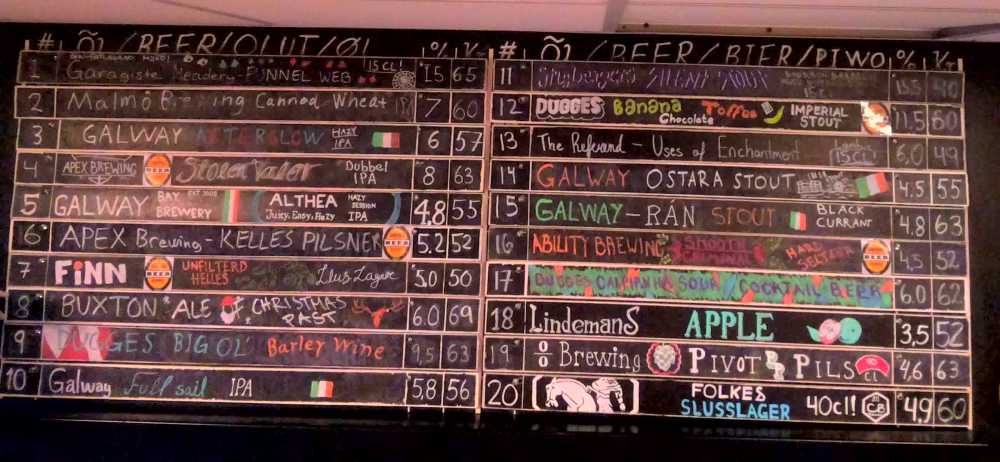 # ÕL/BEER/OLUT/ØL % Kr
1 Garagiste Meadery-FUNNEL WEB 15CL! 15 65
2 Malmö Brewing Canned Wheat 7 60
3 GALWAY AFTERGLOW HAZY IPA 6 57
4 APEX BREWING Stolen Valor Dubbel IPA 8 63
5 GALWAY BAY BREWERY EST. 2009 ALTHEA Juicy, Easy, Hazy HAZY SESSION IPA 4.8 55
6 APEX Brewing - KELLES PILSNER BEER 5.2 52
7 FiNN BEER UNFILTERD HELLES Ljus Lager 5.0 50
8 BUXTON ALE OF CHRISTMAS PAST 6.0 69
9 DUGGES BIG OL' Barley Wine 9,5 63
10 Galway Full sail IPA 5,8 56
# ÕL/BEER/BIER/PIWO %
11
12 DUGGES Banana Toffee Chocolate IMPERIAL STOUT 11.5 60
13 The Referend - Uses of Enchantment 15CL! 6,0 49
14 GALWAY OSTARA STOUT 4.5 55
15 GALWAY-RÁN STOUT BLACK CURRANT 4.8 63
16 ABILITY BREWING SMOOTH CRIMINAL HARD SELTZER BEER 4,5 52
17 DUGGES CAIPIRINHA SOUR/COCKTAIL BEER 6.0 62
18 LindemanS APPLE 3,5 52
19 O/O Brewing PIVOT PILS CL 4,6 63
20 FOLKES SLUSSLAGER 40cl! C.B 4,9 60